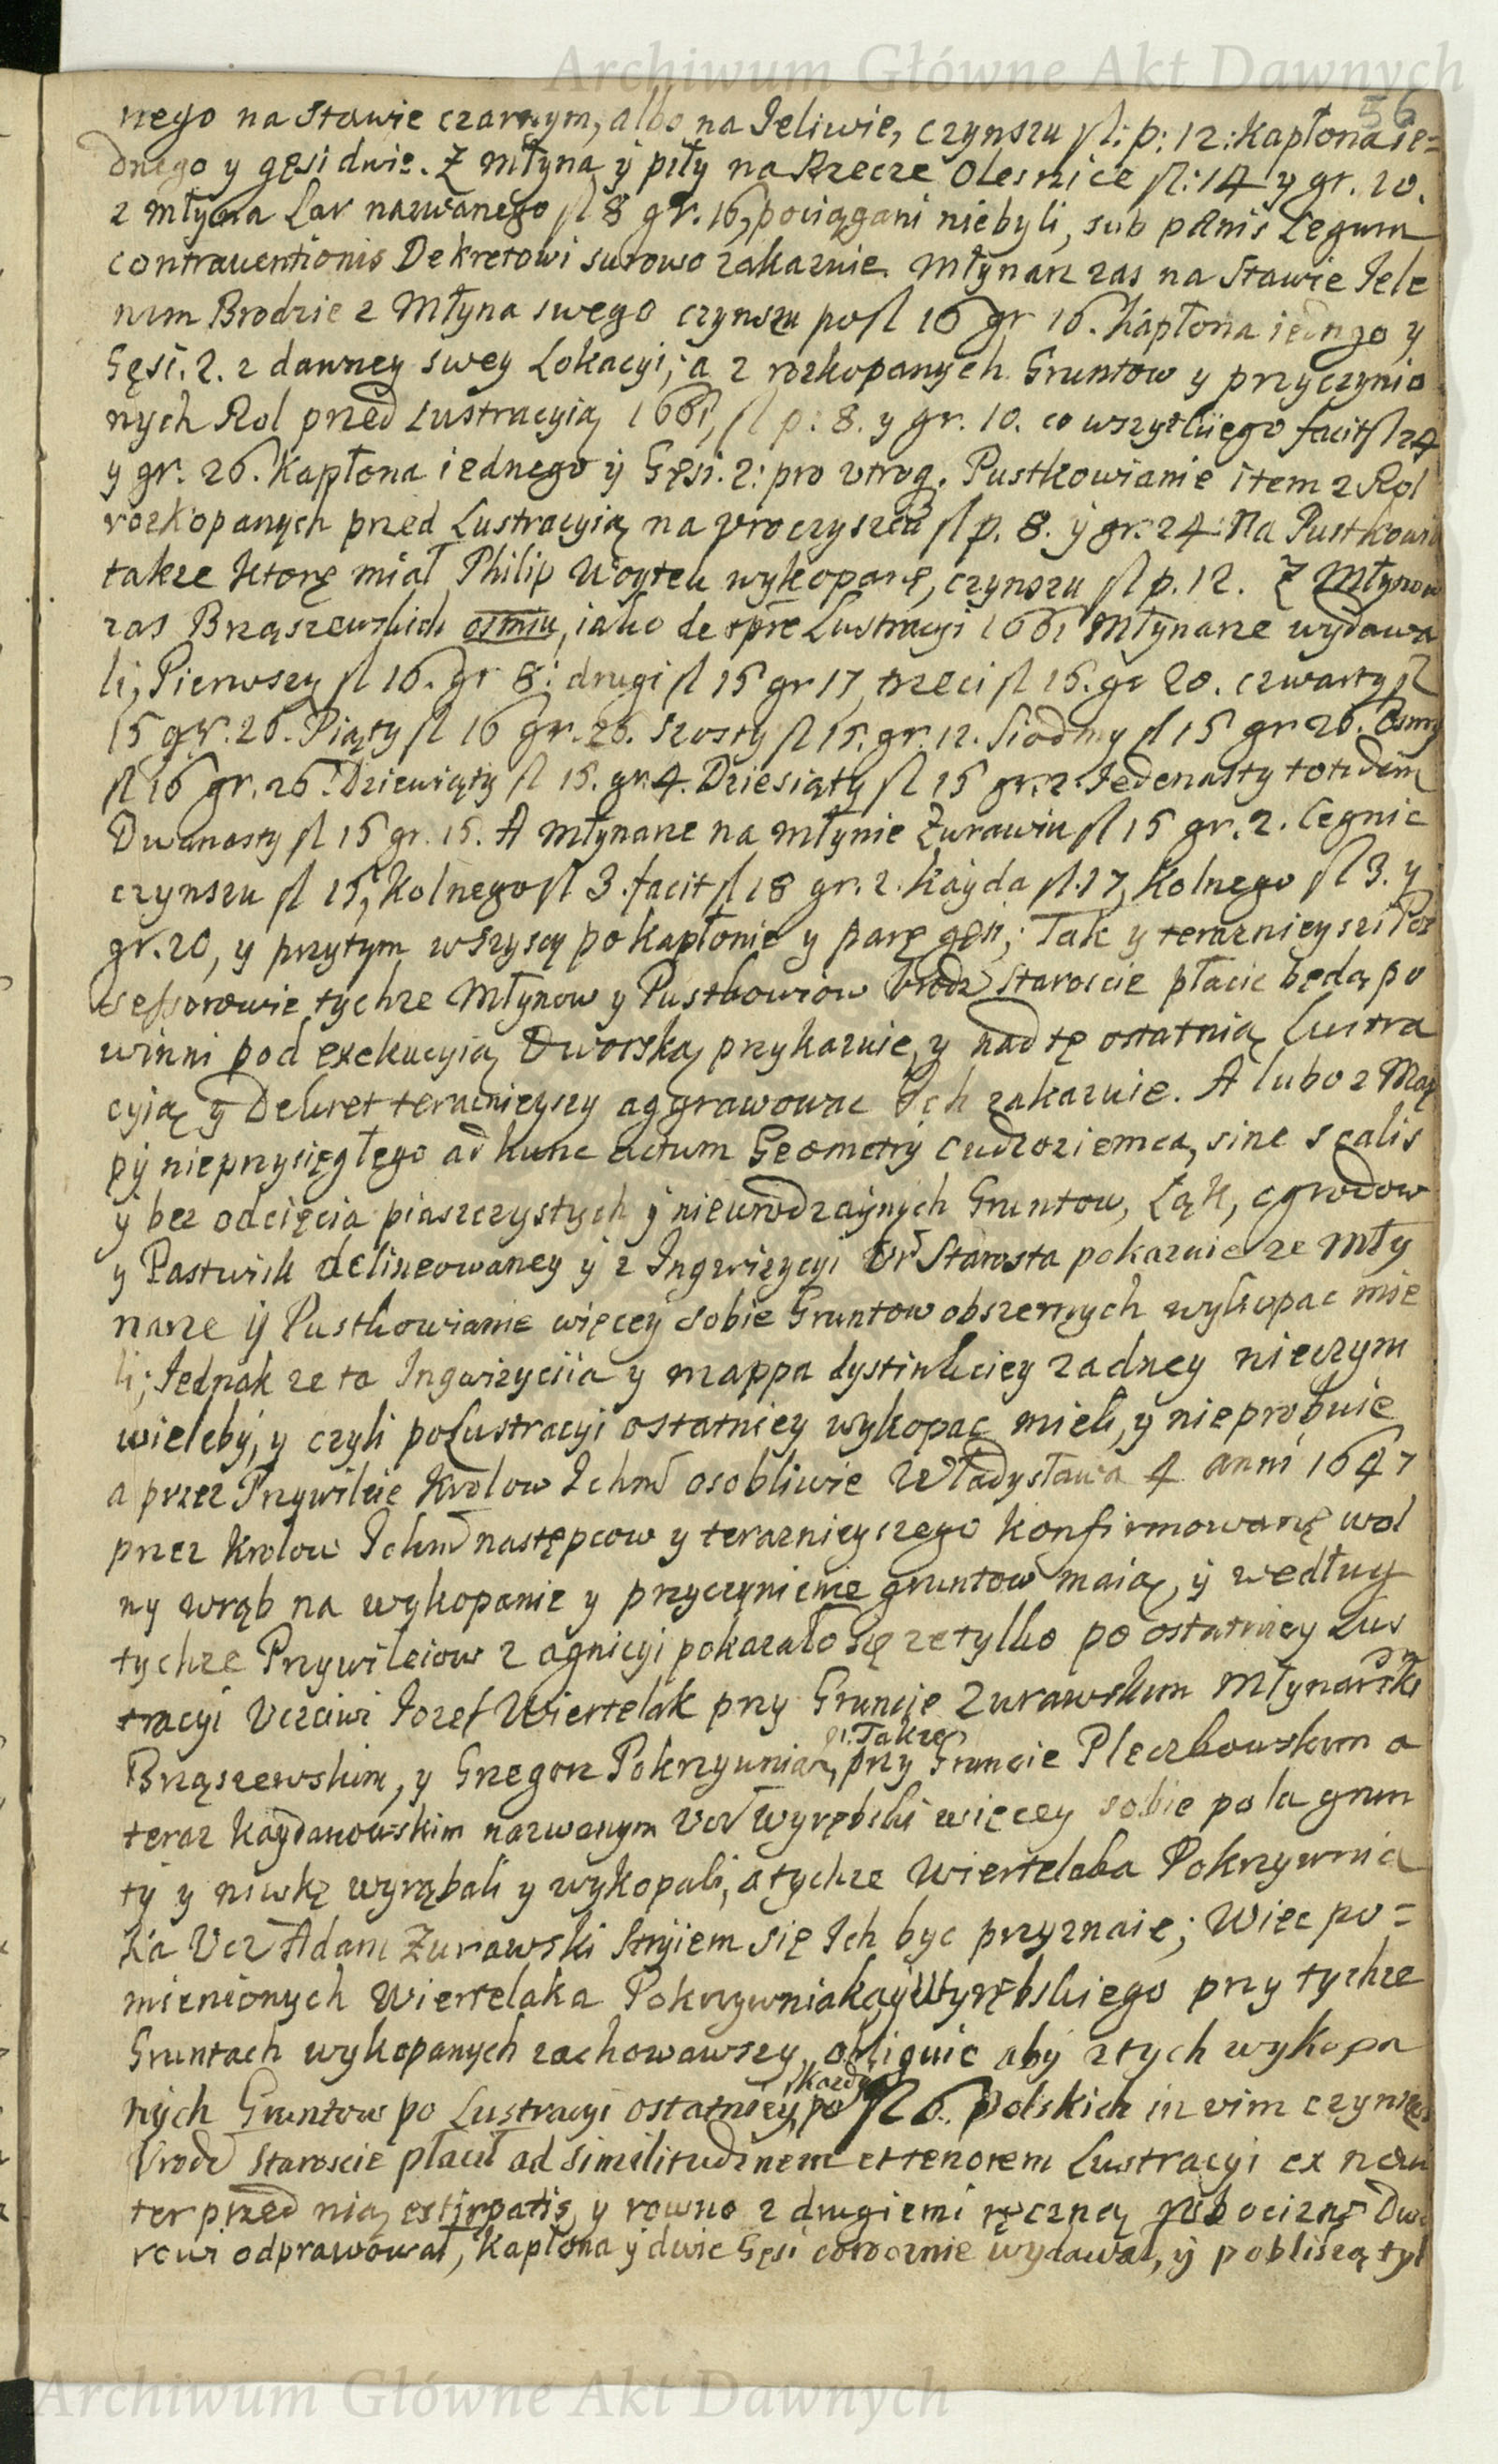 Archiwum Główne Akt Dawnych
56
nego na Stawie czarnym, albo na Jeliwie, czynszu fl: p: 12: Kapłona ie=
dnego y gęsi dwie. Z Młyna y piły na Rzecze Olesnice fl: 14 y gr. 20.
z Młyna Lar nazwanego fl 8 gr. 16, pociągani niebyli, sub paenis Legum
contraventionis Dekretowi surowo zakazuie. Młynarz zas na Stawie Jele
nim Brodzie z Młyna swego czynszu po fl 16 gr 16. Kapłona iednego y
Gęsi. 2. z dawney swey Lokacyi, a z rozkopanych Gruntow y przyczynio
nych Rol przed Lustracyią 1661, fl p: 8. y gr. 10. co wszytkiego facit fl 24
y gr. 26. Kapłona iednego y Gęsi. 2: pro utroq. Pustkowianie item z Rol
rozkopanych przed Lustracyią na vroczyszcu fl p. 8. y gr. 24: Na Pustkowiu
takze ktorę miał Philip Woytek wykopanę, czynszu fl p. 12. Z Młynow
zas Brąszewskich osmiu, iako de opre Lustracyi 1661 Młynarze wydawa
li, Pierwszy fl 16. gr 8: drugi fl 15 gr 17, trzeci fl 16. gr 20. czwarty fl
15 gr. 26. Piąty fl 16 gr. 26. Szosty fl 15. gr. 12. Siodmy fl 15 gr 26. Osmy
fl 16 gr. 26. Dziewiąty fl 15. gr. 4. Dziesiąty fl 15 gr. 2. Jedenasty totidem
Dwanasty fl 15 gr. 15. A Młynarze na Młynie Zurawiu fl 15 gr. 2. Cegnic
czynszu fl 15, Kolnego fl 3. facit fl 18 gr. 2. Kayda fl. 17, Kolnego fl 3. y
gr. 20, y przytym wszyscy po kapłonie y parę gęsi; Tak y teraznieyszi Pos
sessorowie tychze Młynow y Pustkowiow Urodz Staroscie płacic będą po
winni pod exekucyią Dworską przykazuie, y nad tę ostatnią Lustra
cyią y Dekret teraznieyszy aggrawowac Ich zakazuie. A lubo z Map
py nieprzysięgłego ad hunc actum Geometry cudzoziemca, sine scalis
y bez odcięcia piaszczystych y nieurodzaynych Gruntow, Łąk, ogrodow
y Pastwisk delineowaney y z Inqwizycyi Ur Starosta pokazuie ze Mły
narze y Pustkowianie więcey sobie Gruntow obszernych wykopac mie
li; Jednak ze ta Inqwizyciia y mappa dystinkciey zadney nieczym
wieleby, y czyli po Lustracyi ostatniey wykopac mieli, y nieprobuie
a przez Przywileie Krolow Ichm osobliwie Władysława 4 anni 1647
przez Krolow Ichm następcow y teraznieyszego konfirmowanę wol
ny wrąb na wykopanie y przyczynienie gruntow maią, y według
tychze Przywileiow z agnicyi pokazało się ze tylko po ostatniey Lus
tracyi Uczciwi Jozef Wiertelak przy Gruncie Zurawskim Młynarski
Brąszewskim, y Grzegorz Pokrzywniak, Takze przy Gruncie Pleczkowskim a
teraz Kaydanowskim nazwanym Ucz Wyrębski więcey sobie pola grun
ty y niwkę wyrąbali y wykopali, a tychze Wiertelaka Pokrzywnia
ka Ucz Adam Zurawski Stryiem się Ich byc przyznaie; Więc po=
mienionych Wiertelaka Pokrzywniaka y Wyrębskiego przy tychze
Gruntach wykopanych zachowawszy, obliguie aby z tych wykopa
nych Gruntow po Lustracyi ostatniey, Kazdy po fl 6. Polskich in vim czynszu
Urodz Staroscie płacił ad similitudinem et tenorem Lustracyi ex novi
ter przed nią estirpatis, y rowno z drugiemi ręczną robociznę Dwo
rowi odprawował, Kapłona y dwie Gęsi corocznie wydawał, y pobliszą tyl
Archiwum Główne Akt Dawnych